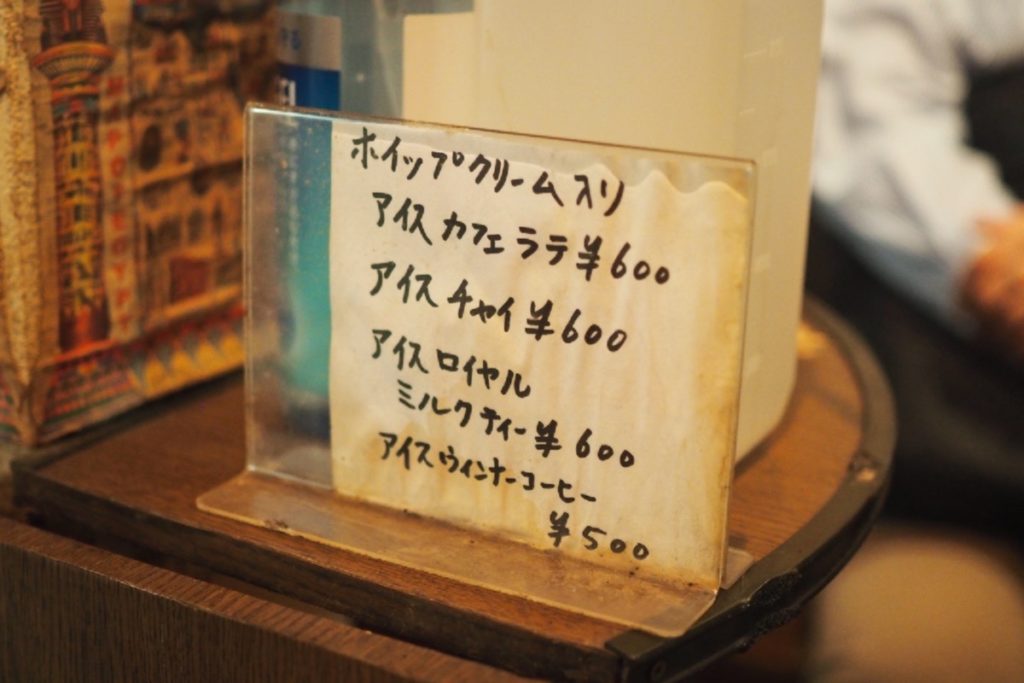 ホイップクリーム入り
アイスカフェラテ¥600
アイスチャイ¥600
アイスロイヤル
ミルクティー¥600
アイスウィンナーコーヒー
¥500